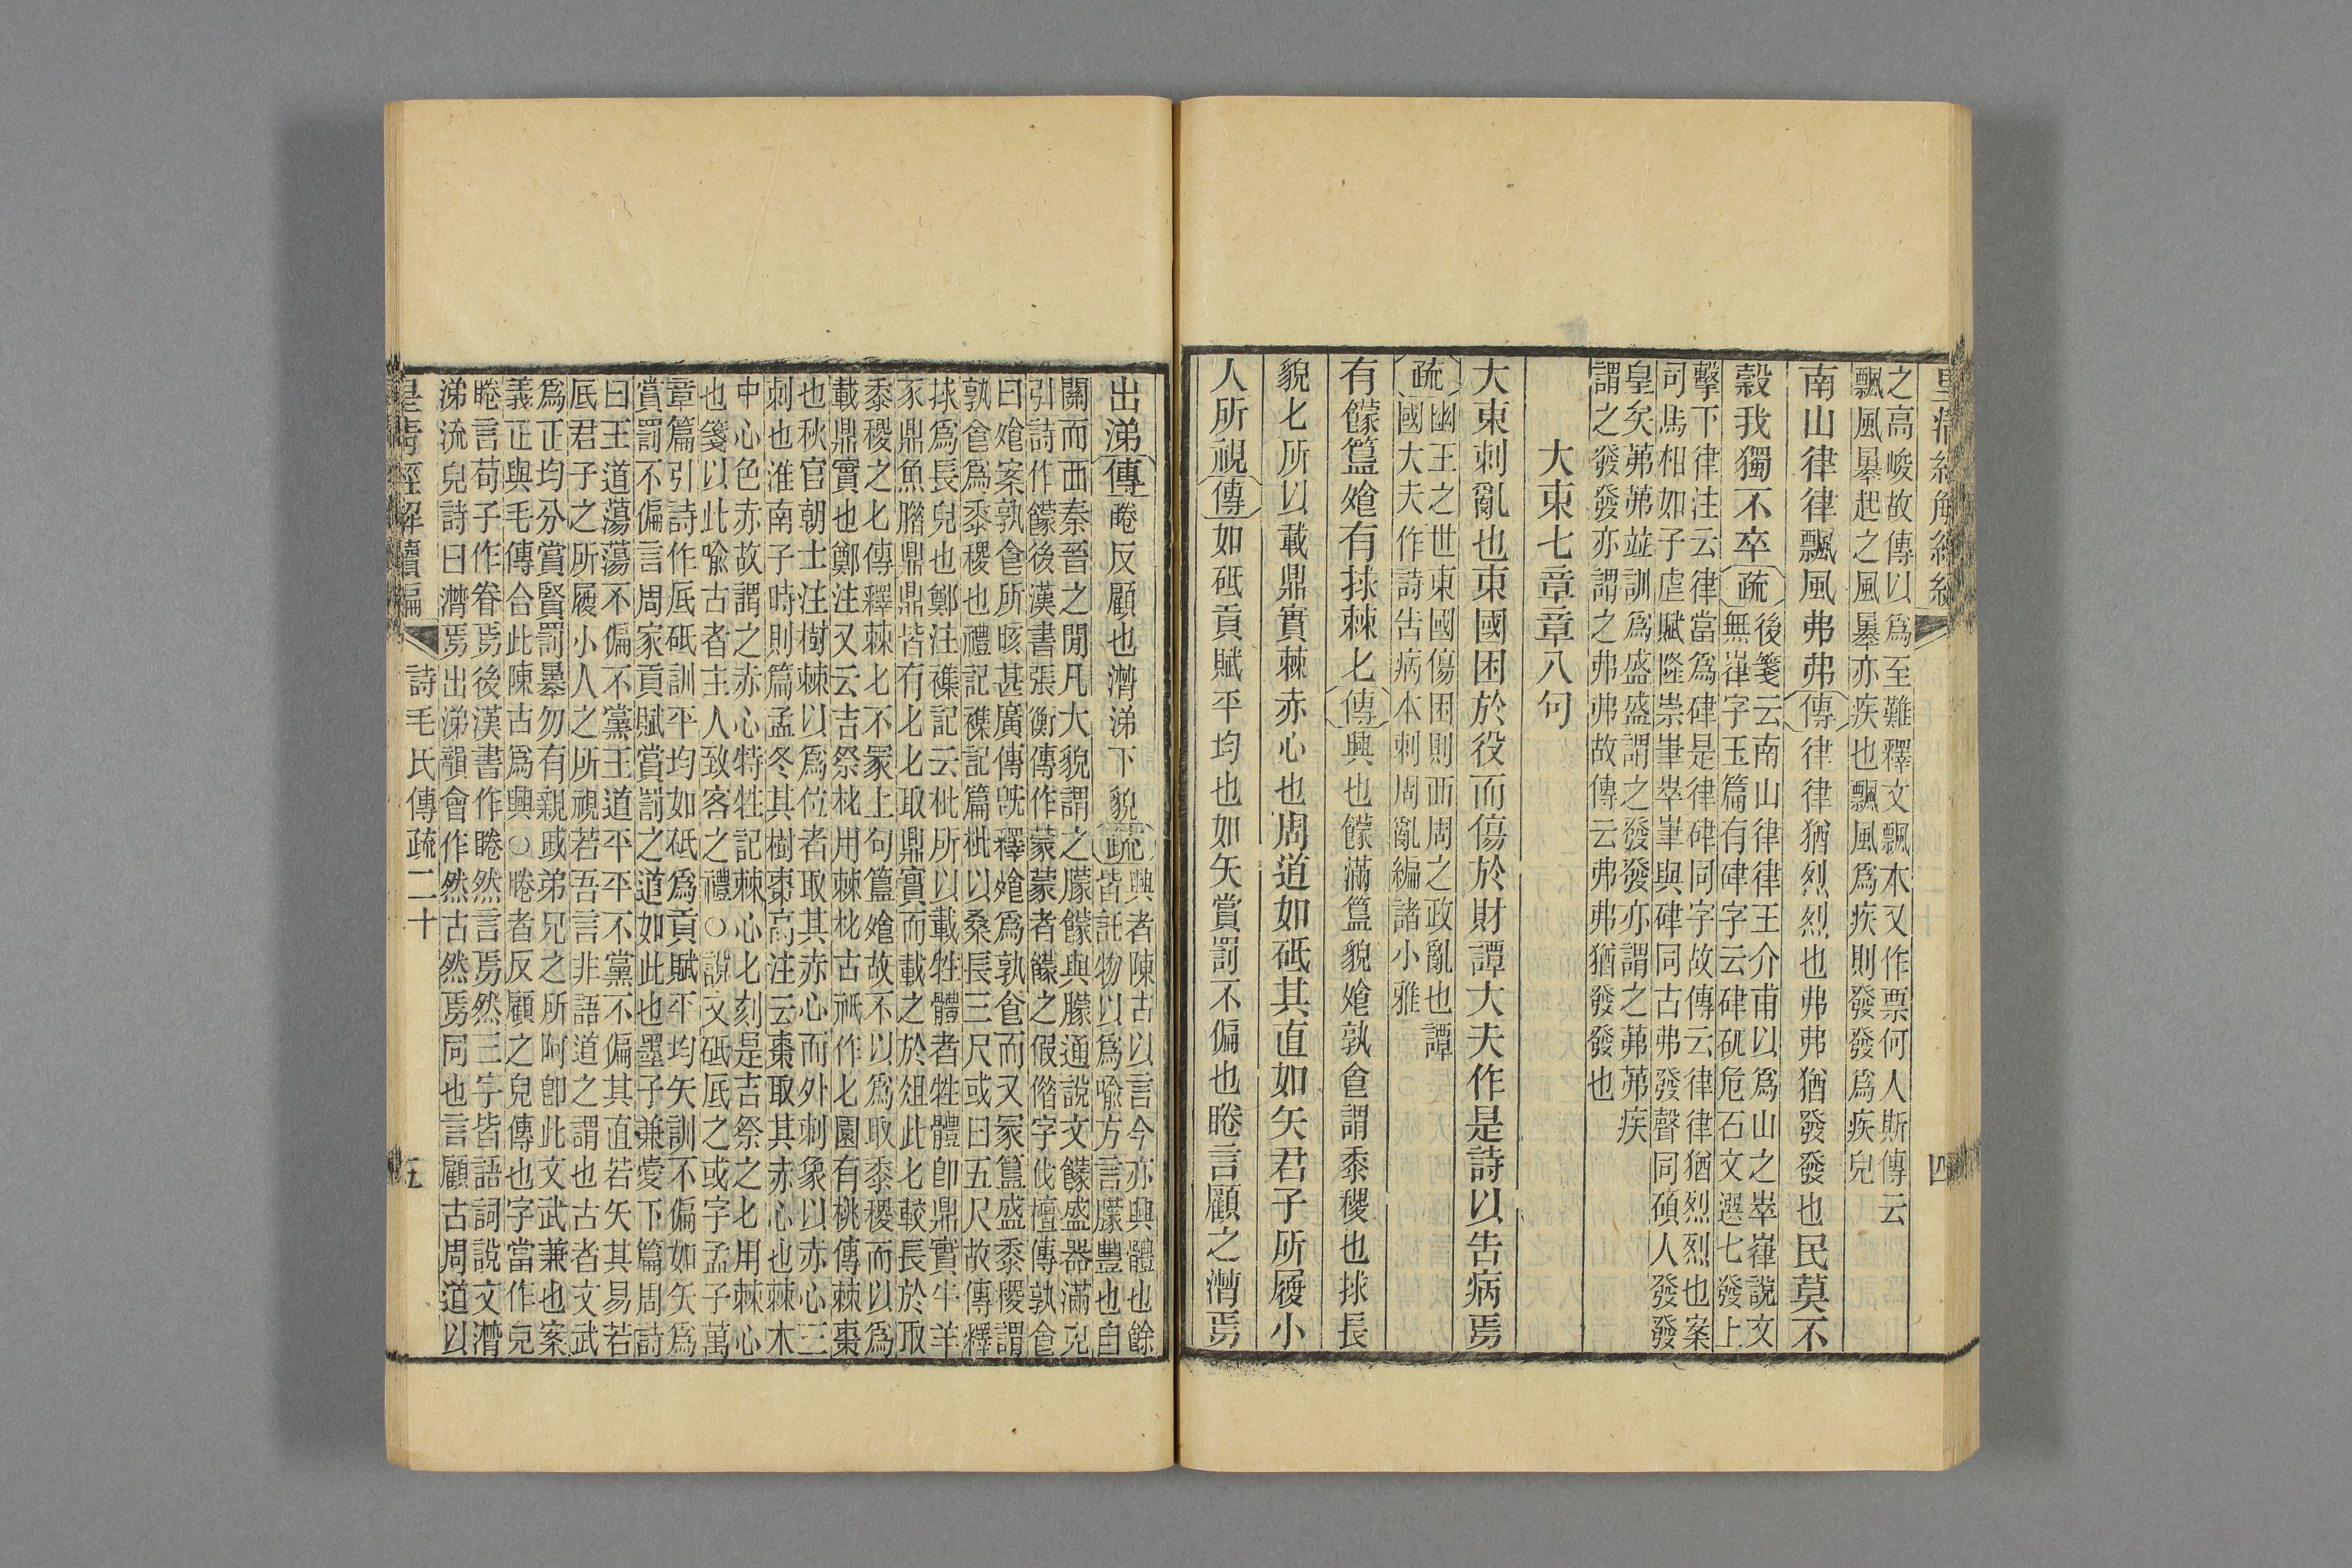 皇清經解續編
四
之高峻故傳以爲至難釋文飄本又作票何人斯傳云
飄風暴起之風暴亦疾也飄風爲疾則發發爲疾皃
南山律律飄風弗弗傳律律猶烈烈也弗弗猶發發也民莫不
穀我獨不卒疏
後箋云南山律律王介甫以爲山之崒嵂說文
無嵂字玉篇有硉字云硉矹危石文選七發上
擊下律注云律當爲硉是律硉同字故傳云律律猶烈烈也案
司馬相如子虗賦隆崇嵂崒嵂與硉同古弗發聲同碩人發發
皇矣茀茀竝訓爲盛盛謂之發發亦謂之茀茀疾
謂之發發亦謂之弗弗故傳云弗弗猶發發也
大東七章章八句
大東刺亂也東國困於役而傷於財譚大夫作是詩以告病焉
疏
幽王之世東國傷困則西周之政亂也譚
國大夫作詩告病本刺周亂編諸小雅
有饛簋飧有捄棘匕傳興也饛滿簋貌飧孰食謂黍稷也捄長
貌匕所以載鼎實棘赤心也周道如砥其直如矢君子所履小
人所視傳如砥貢賦平均也如矢賞罰不偏也睠言顧之潸焉
出涕傳睠反顧也潸涕下貌疏
興者陳古以言今亦興體也餘
皆託物以爲喩方言朦豐也自
關而西秦晉之閒凡大貌謂之朦饛與朦通說文饛盛器滿皃
引詩作饛後漢書張衡傳作蒙蒙者饛之假偕字伐檀傳孰食
曰飧案孰食所晐甚廣傳旣釋飧爲孰食而又冡簋盛黍稷謂
孰食爲黍稷也禮記襍記篇枇以桑長三尺或曰五尺故傳釋
捄爲長皃也鄭注襍記云枇所以載牲體者牲體卽鼎實牛羊
豕鼎魚腊鼎鼎皆有匕匕取鼎實而載之於俎此匕較長於取
黍稷之匕傳釋棘匕不冡上句簋飧故不以爲取黍稷而以爲
載鼎實也鄭注又云吉祭枇用棘枇古祇作匕園有桃傳棘棗
也秋官朝士注樹棘以爲位者取其赤心而外刺象以赤心三
刺也淮南子時則篇孟冬其樹棗高注云棗取其赤心也棘木
中心色赤故謂之赤心特牲記棘心匕刻是吉祭之匕用棘心
也箋以此喩古者主人致客之禮○說文砥厎之或字孟子萬
章篇引詩作厎砥訓平均如砥爲貢賦平均矢訓不偏如矢爲
賞罰不偏言周家貢賦賞罰之道如此也墨子兼愛下篇周詩
曰王道蕩蕩不偏不黨王道平平不黨不偏其直若矢其易若
厎君子之所履小人之所視若吾言非語道之謂也古者文武
爲正均分賞賢罰暴勿有親戚弟兄之所阿卽此文武兼也案
義正與毛傳合此陳古爲興○睠者反顧之皃傳也字當作皃
睠言荀子作眷焉後漢書作睠然言焉然三字皆語詞說文潸
涕流皃詩曰潸焉出涕韻會作然古然焉同也言顧古周道以
皇清經解續編
詩毛氏傳疏二十
五